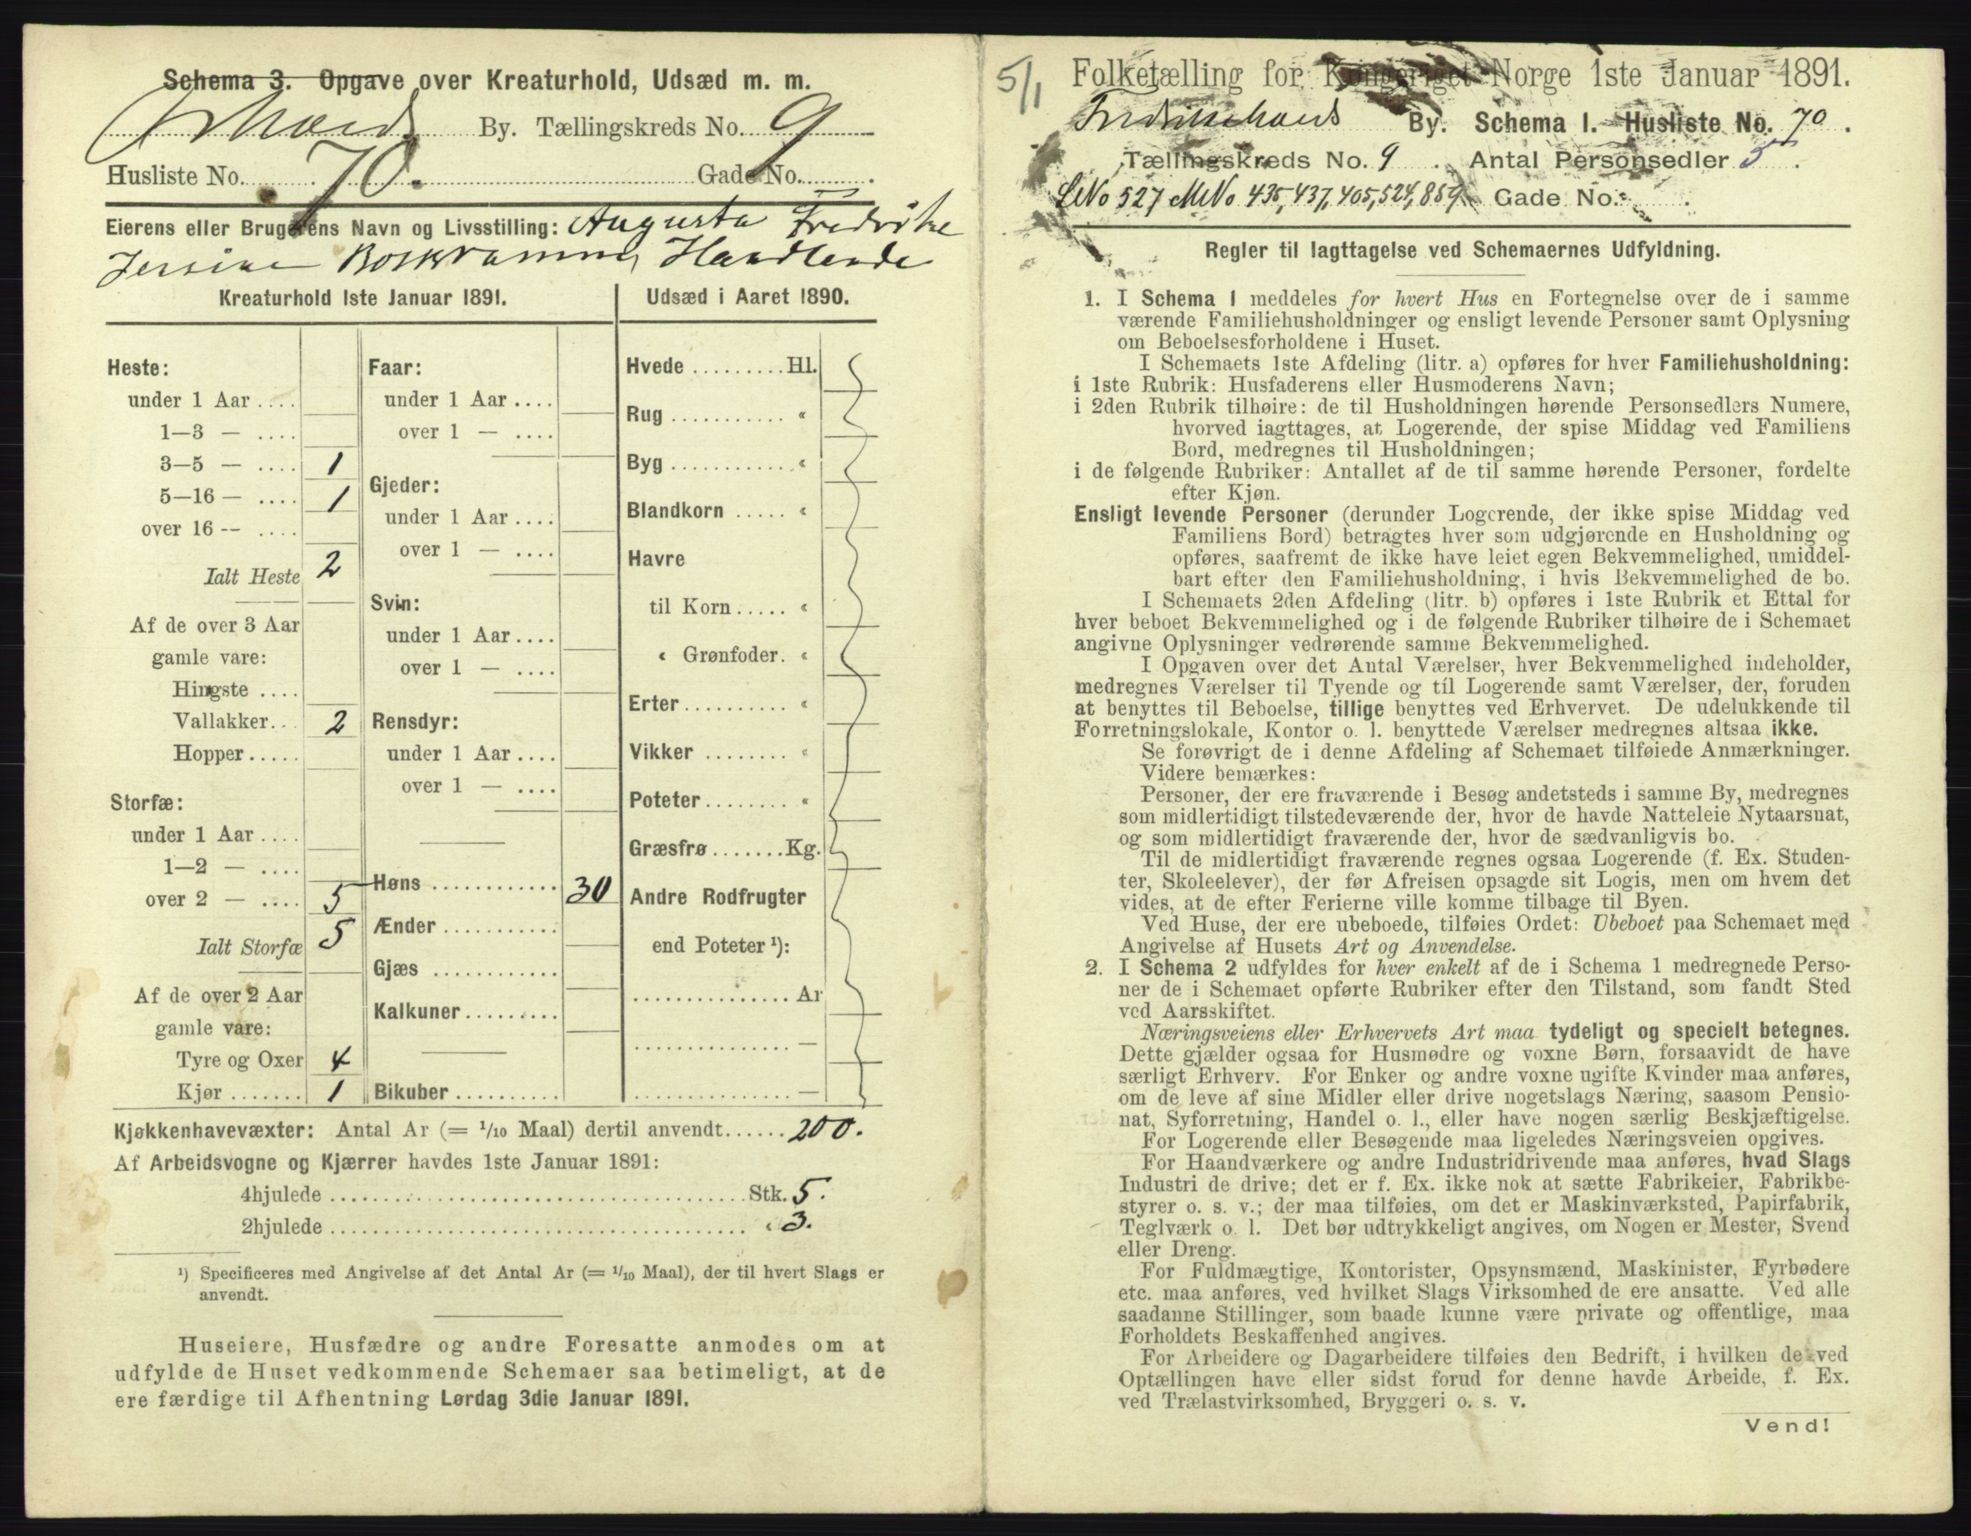 Schema 3. Opgave over Kreaturhold, Udsæd m. m.
By. Tællingskreds No. 9
Husliste No. 70. Gade No.
Eierens eller Brugerens Navn og Livsstilling: Augusta Fredrike
Handlende
Kreaturhold 1ste Januar 1891.
Heste:
under 1 Aar ....
1—3 — ....
3—5 — .... 1
5—16 — .... 1
over 16 -- ....
Ialt Heste 2
Af de over 3 Aar
gamle vare:
Hingste ....
Vallakker... 2
Hopper.....
Storfæ:
under 1 Aar ....
1—2 — ....
over 2 — .... 5
Ialt Storfæ 5
Af de over 2 Aar
gamle vare:
Tyre og Oxer 4
Kjør ....... 1
Faar:
under 1 Aar ....
over 1 — ....
Gjeder:
under 1 Aar ....
over 1 — ....
Svin:
under 1 Aar ....
over 1 — ....
Rensdyr:
under 1 Aar ....
over 1 — ....
Høns ............ 30
Ænder ...........
Gjæs ............
Kalkuner.........
Bikuber ..........
Udsæd i Aaret 1890.
Hvede .........Hl.
Rug ............ «
Byg ............ «
Blandkorn ..... «
Havre
til Korn ..... «
« Grønfoder. «
Erter........... «
Vikker ........ «
Poteter........ «
Græsfrø .......Kg.
Andre Rodfrugter
end Poteter ¹):
............... Ar
............... —
............... —
Kjøkkenhavevæxter: Antal Ar (= 1/10 Maal) dertil anvendt...... 200.
Af Arbeidsvogne og Kjærrer havdes 1ste Januar 1891:
4hjulede ........................................ Stk. 5.
2hjulede ........................................ « 3.
¹) Specificeres med Angivelse af det Antal Ar (= 1/10 Maal), der til hvert Slags er
anvendt.
Huseiere, Husfædre og andre Foresatte anmodes om at
udfylde de Huset vedkommende Schemaer saa betimeligt, at de
ere færdige til Afhentning Lørdag 3die Januar 1891.
5/1
Folketælling for Kongeriget Norge 1ste Januar 1891.
By. Schema I. Husliste No. 70.
Tællingskreds No. 9. Antal Personsedler 5.
LNo 527 MNo 435, 437, 405, 524, 859 Gade No.
Regler til Iagttagelse ved Schemaernes Udfyldning.
1. I Schema 1 meddeles for hvert Hus en Fortegnelse over de i samme
værende Familiehusholdninger og ensligt levende Personer samt Oplysning
om Beboelsesforholdene i Huset.
I Schemaets 1ste Afdeling (litr. a) opføres for hver Familiehusholdning:
i 1ste Rubrik: Husfaderens eller Husmoderens Navn;
i 2den Rubrik tilhøire: de til Husholdningen hørende Personsedlers Numere,
hvorved iagttages, at Logerende, der spise Middag ved Familiens
Bord, medregnes til Husholdningen;
i de følgende Rubriker: Antallet af de til samme hørende Personer, fordelte
efter Kjøn.
Ensligt levende Personer (derunder Logerende, der ikke spise Middag ved
Familiens Bord) betragtes hver som udgjørende en Husholdning og
opføres, saafremt de ikke have leiet egen Bekvemmelighed, umiddel-
bart efter den Familiehusholdning, i hvis Bekvemmelighed de bo.
I Schemaets 2den Afdeling (litr. b) opføres i 1ste Rubrik et Ettal for
hver beboet Bekvemmelighed og i de følgende Rubriker tilhøire de i Schemaet
angivne Oplysninger vedrørende samme Bekvemmelighed.
I Opgaven over det Antal Værelser, hver Bekvemmelighed indeholder,
medregnes Værelser til Tyende og til Logerende samt Værelser, der, foruden
at benyttes til Beboelse, tillige benyttes ved Erhvervet. De udelukkende til
Forretningslokale, Kontor o. l. benyttede Værelser medregnes altsaa ikke.
Se forøvrigt de i denne Afdeling af Schemaet tilføiede Anmærkninger.
Videre bemærkes:
Personer, der ere fraværende i Besøg andetsteds i samme By, medregnes
som midlertidigt tilstedeværende der, hvor de havde Natteleie Nytaarsnat,
og som midlertidigt fraværende der, hvor de sædvanligvis bo.
Til de midlertidigt fraværende regnes ogsaa Logerende (f. Ex. Studen-
ter, Skoleelever), der før Afreisen opsagde sit Logis, men om hvem det
vides, at de efter Ferierne ville komme tilbage til Byen.
Ved Huse, der ere ubeboede, tilføies Ordet: Ubeboet paa Schemaet med
Angivelse af Husets Art og Anvendelse.
2. I Schema 2 udfyldes for hver enkelt af de i Schema 1 medregnede Perso-
ner de i Schemaet opførte Rubriker efter den Tilstand, som fandt Sted
ved Aarsskiftet.
Næringsveiens eller Erhvervets Art maa tydeligt og specielt betegnes.
Dette gjælder ogsaa for Husmødre og voxne Børn, forsaavidt de have
særligt Erhverv. For Enker og andre voxne ugifte Kvinder maa anføres,
om de leve af sine Midler eller drive nogetslags Næring, saasom Pensio-
nat, Syforretning, Handel o. l., eller have nogen særlig Beskjæftigelse.
For Logerende eller Besøgende maa ligeledes Næringsveien opgives.
For Haandværkere og andre Industridrivende maa anføres, hvad Slags
Industri de drive; det er f. Ex. ikke nok at sætte Fabrikeier, Fabrikbe-
styrer o. s. v.; der maa tilføies, om det er Maskinværksted, Papirfabrik,
Teglværk o. l. Det bør udtrykkeligt angives, om Nogen er Mester, Svend
eller Dreng.
For Fuldmægtige, Kontorister, Opsynsmænd, Maskinister, Fyrbødere
etc. maa anføres, ved hvilket Slags Virksomhed de ere ansatte. Ved alle
saadanne Stillinger, som baade kunne være private og offentlige, maa
Forholdets Beskaffenhed angives.
For Arbeidere og Dagarbeidere tilføies den Bedrift, i hvilken de ved
Optællingen have eller sidst forud for denne havde Arbeide, f. Ex.
ved Trælastvirksomhed, Bryggeri o. s. v.
Vend!